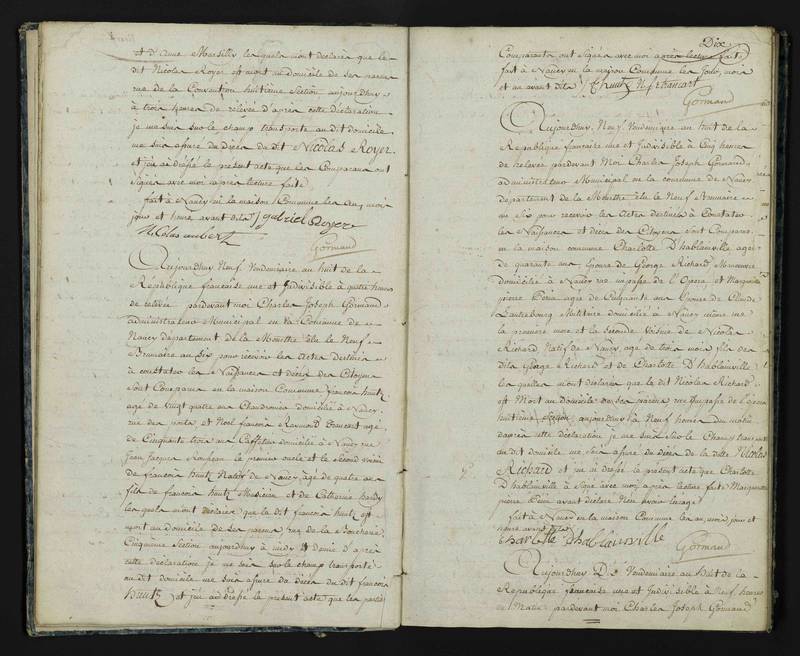 et d'anne Marsilly lesquels m'ont déclarés que le
dit Nicolas Royer est mort au domicile de ses pareus
rue de la Convention huitième Section aujourdhuy
à trois heures de relevée d'après cette déclaration
je me suis sur le champ transporté au dit domicile
me suis assuré du décès du dit Nicolas Royer.
et j'ai dréssé le présent acte que les Comparans ont
Signés avec moi après lecture faite
fait à Nancy en la maison Commune les an, mois
jour et heure avant dits J gabriel Royer
Nicolas
Gormand
Aujourdhuy Neuf Vendemiaire an huit de la
République francaise une et Indivisible à quatre heures
de relevée pardevant moi Charles Joseph Gormand
administrateur Municipal en la Commune de
Nancy département de la Meurthe élu le Neuf
Brumaire an Six pour recevoir les actes destinés
à constater les Naissances et décès des Citoyens
sont Comparus en la maison Commune francois hautz
agé de vingt quatre ans domicilié à Nancy
rue des ponts et Noel francois Raymond francart agé
de Cinquante trois ans Caffetier domicilié à Nancy rue
Jean Jacques Rousseau le premier oncle et le second voisin
de francois hautz Natif de Nancy âgé de quatre ans
fils de francois hautz Musicien et de Catherine
lesquels m'ont déclarés que le dit francois hautz est
mort au domicile de ses pareus rue de la Boucherie
Cinquième Section aujourdhuy à midy et demie d'après
cette déclaration je me suis sur le champ transporté
au dit domicile me suis assuré du décès du dit francois
hautz et j'ai dréssé le présent acte que les
Dix
Comparants ont Signés avec moi après lecture faite
fait à Nancy en la maison Commune les Jour, mois
et an avant dits hautz N f r francart
Gormand
Aujourdhuy Neuf Vendemiaire an huit de la
République francaise une et Indivisible à Cinq heures
de relevée pardevant Moi Charles Joseph Gormand,
administrateur Municipal en la commune de Nancy
departement de la Meurthe élu le Neuf Brumaire
an six pour recevoir les Actes destinés à Constater
les Naissances et décès des Citoyens sont Comparus
en la maison commune Charlotte D'hablainville agée
de quarante ans Epouse de George Richard Manoeuvre
domicilié à Nancy rue impasse de l'Opera et Marguerite
pierre agée de Cinquante ans Epouse de Claude
Lautrebourg domicilié à Nancy même rue
la première mere et la seconde Voisine de Nicolas
Richard Natif de Nancy, agé de trois mois fils des
dits George Richard et de Charlotte D'hablainville
lesquelles m'ont déclarés que le dit Nicolas Richard
est Mort au domicile de ses pareus rue Impasse de l'opera
huitième Section aujourdhuy à Neuf heures du matin
d'après cette déclaration je me suis sur le Champ transporté
au dit domicile me suis assuré du décès de la ditte Nicolas
Richard et j'ai dréssé le présent acte que Charlotte
D'hablainville à Signé avec moi après lecture faite Marguerite
pierre avant déclaré N'en avoir l'usage
fait à Nancy en la maison Commune les an mois jour et
heure avant dits
charlotte Dhablainville Gormand
Aujourdhuy Dix Vendemiaire an Huit de la
République francaise une et Indivisible à Neuf heures
du Matin pardevant moi Charles Joseph Gormand